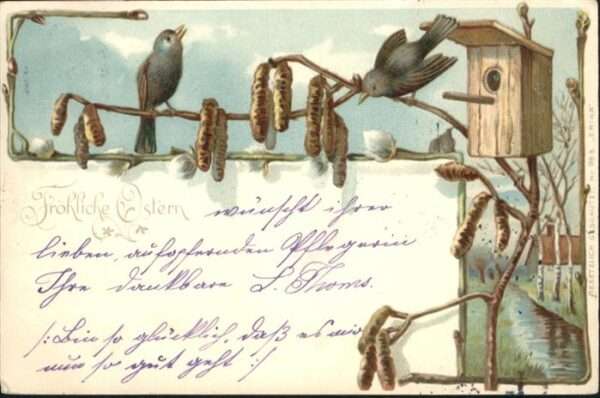 Fröhliche Ostern wünscht ihrer
lieben, aufopfernden Pflegerin
Ihre dankbare L. Thoms.
/: Bin so glücklich, daß es mir
nun so gut geht :/
GESETZLICH GESCHÜTZT